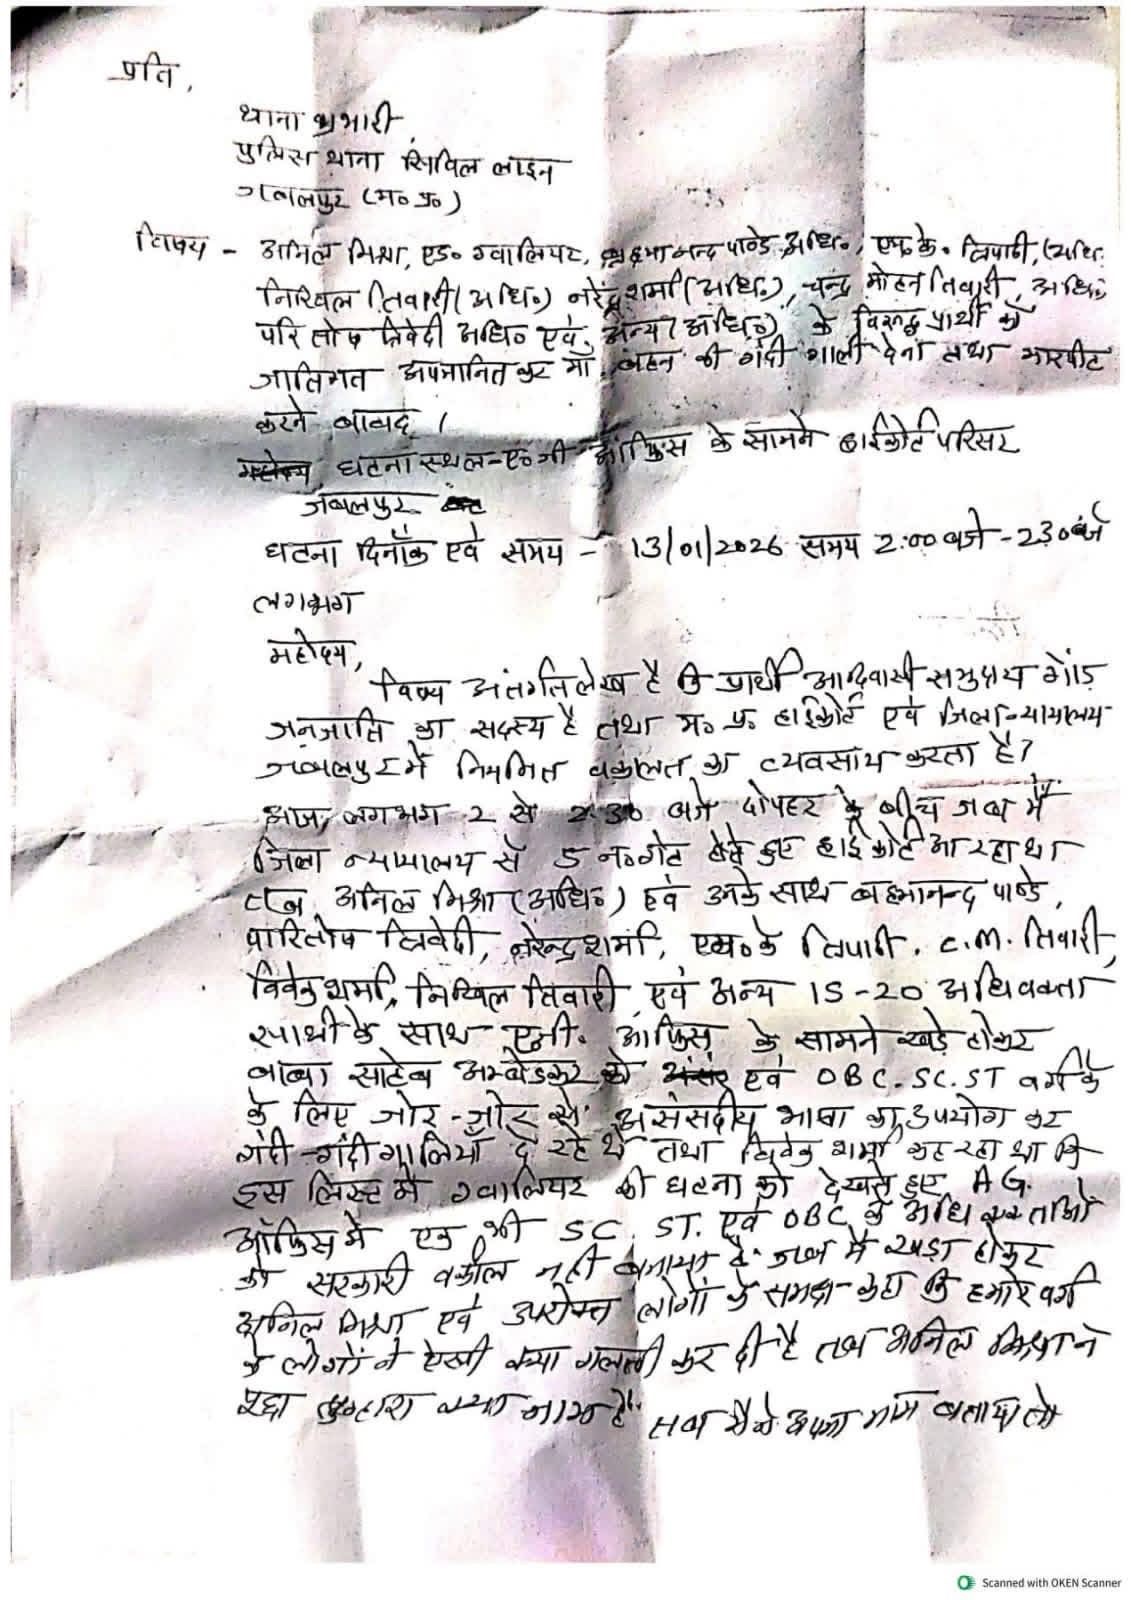 प्रति,
थाना प्रभारी
पुलिस थाना सिविल लाइन
जबलपुर (म० प्र०)
विषय - अनिल मिश्रा, एड० ग्वालियर, ब्रह्मानन्द पाण्डे अधि०, एम० के० त्रिपाठी, (अधि०
निखिल तिवारी (अधि०) नरेंद्र शर्मा (अधि०), चन्द्र मोहन तिवारी, अधि०
परितोष त्रिवेदी अधि० एवं अन्य (अधि०) के विरुद्ध प्रार्थी को
जातिगत अपमानित कर माँ, बहन की गंदी गाली देना तथा मारपीट
करने बाबद् ।
घटना स्थल - ए० जी ऑफिस के सामने हाईकोर्ट परिसर
जबलपुर
घटना दिनाँक एवं समय - 13/01/2026 समय 2:00 बजे - 2:30 बजे
लगभग
महोदय,
विषय अंतर्गत लेख है कि प्रार्थी आदिवासी समुदाय गोंड
जनजाति का सदस्य है तथा म० प्र० हाईकोर्ट एवं जिला न्यायालय
जबलपुर में नियमित वकालत का व्यवसाय करता है?
आज, लगभग 2 से 2:30 बजे दोपहर के बीच जब मैं
जिला न्यायालय से 5 न० गेट होते हुए हाई कोर्ट आ रहा था
तब अनिल मिश्रा (अधि०) एवं उनके साथ ब्रहमानन्द पाण्डे,
पारितोष त्रिवेदी, नरेन्द्र शर्मा, एम० के त्रिपाठी, C.M. तिवारी,
विवेक शर्मा, निखिल तिवारी एवं अन्य 15-20 अधिवक्ता
साथी के साथ ए.जी. ऑफिस के सामने खड़े होकर
बाबा साहेब अम्बेडकर को एवं OBC. SC. ST वर्ग के
के लिए जोर-जोर से असंसदीय भाषा का उपयोग कर
गंदी-गंदी गालियाँ दे रहे थे तथा विवेक शर्मा कह रहा था कि
इस लिस्ट में ग्वालियर की घटना को देखते हुए A.G.
ऑफिस में एक भी SC. ST. एवं OBC के अधिवक्ताओं
को सरकारी वकील नहीं बनाया है. जब मैं खड़ा होकर
अनिल मिश्रा एवं उपरोक्त लोगों के समक्ष कहा कि हमारे वर्ग
के लोगों ने ऐसी क्या गलती कर दी है तब अनिल मिश्रा ने
पूछा तुम्हारा क्या नाम है" तब मैंने अपना नाम बताया तो
Scanned with OKEN Scanner